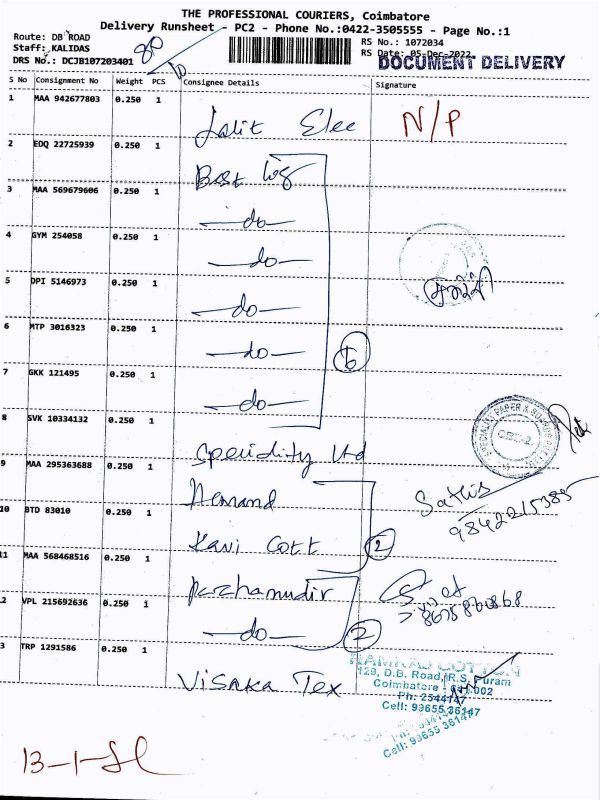 THE PROFESSIONAL COURIERS, Coimbatore
Delivery Runsheet - PC2 - Phone No.:0422-3505555 - Page No.:1
Route: DB ROAD
RS No.: 1072034
Staff: KALIDAS
RS Date: 05-Dec-2022
DRS No.: DCJB107203401
DOCUMENT DELIVERY
S No Consignment No Weight PCS Consignee Details Signature
1 MAA 942677803 0.250 1
Lalit Elec N/P
2 EDQ 22725939 0.250 1
Best
3 MAA 569679606 0.250 1
do
4 GYM 254058 0.250 1
do
5 DPI 5146973 0.250 1
do
6 MTP 3016323 0.250 1
do 6
7 GKK 121495 0.250 1
do
8 SVK 10334132 0.250 1
SPECIALITY PAPER & BOARDS
Ltd
9 MAA 295363688 0.250 1
Sathis
9842215385
10 BTD 83010 0.250 1
Cott 2
11 MAA 568468516 0.250 1
2 VPL 215692636 0.250 1
do 2
3 TRP 1291586 0.250 1
Visaka Tex
RAMRAJ COTTON
129, D.B. Road, R.S. Puram
Coimbatore - 641 002
Ph: 2544147
Cell: 93655 36147
Cell: 93655 36147
13-1-